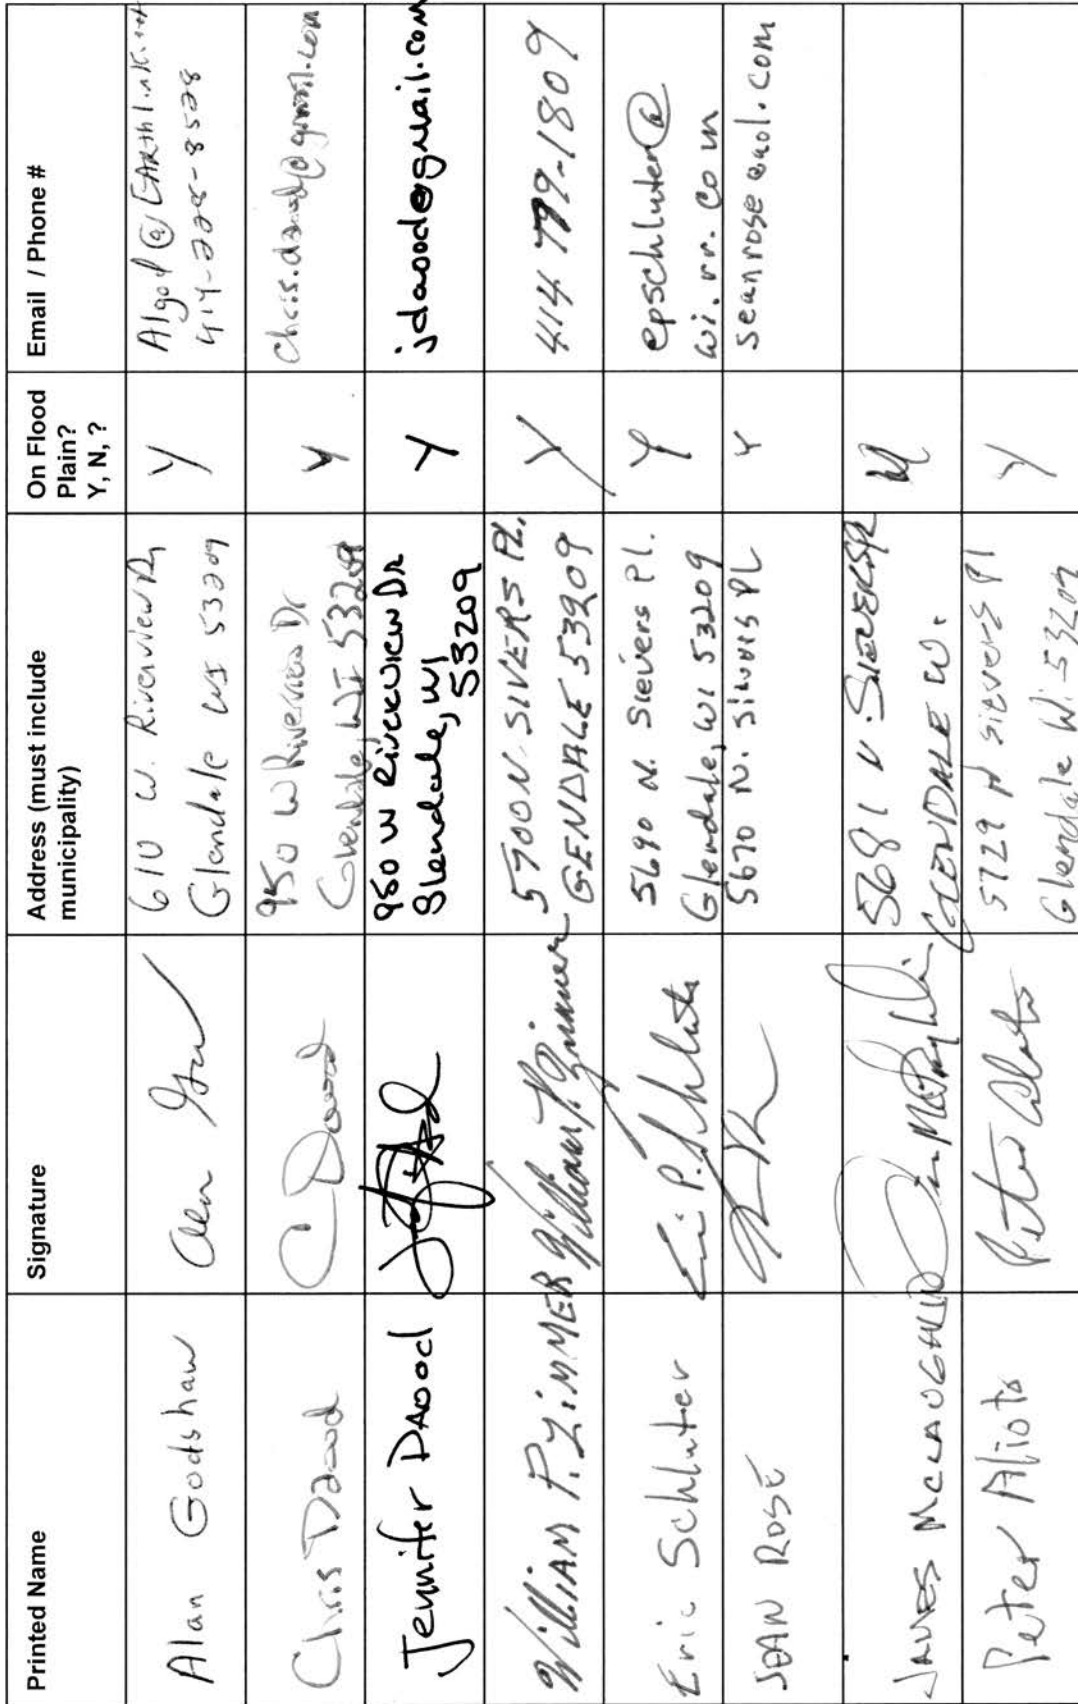 Printed Name
Signature
Address (must include
municipality)
On Flood
Plain?
Y, N, ?
Email / Phone #
Alan Godshaw
610 W. Riverview Dr
Glendale WI 53209
Y
Algod@EARthlink.net
414-228-8528
Chris Daood
C Daood
950 W Riverview Dr
Glendale, WI 53209
Y
chris.daood@gmail.com
Jennifer DAood
950 W RiveRview DR
Glendale, WI
53209
Y
jdaood@gmail.com
William P. ZiMMER
William P. Zimmer
5700 N. SIVERS PL.
GENDALE 53209
Y
414 779-1809
Eric Schluter
Eric P. Schluter
5690 N. Sievers Pl.
Glendale, WI 53209
Y
epschluter@
wi.rr.com
SEAN ROSE
5670 N. SIEVERS PL
Y
seanrose@aol.com
JAMES McLAUGHLIN
Jim McLaughlin
5681 N. SIEVERS PL
GLENDALE WI.
Peter Alioto
Peter Alioto
5729 N Sievers Pl
Glendale Wi-53209
Y